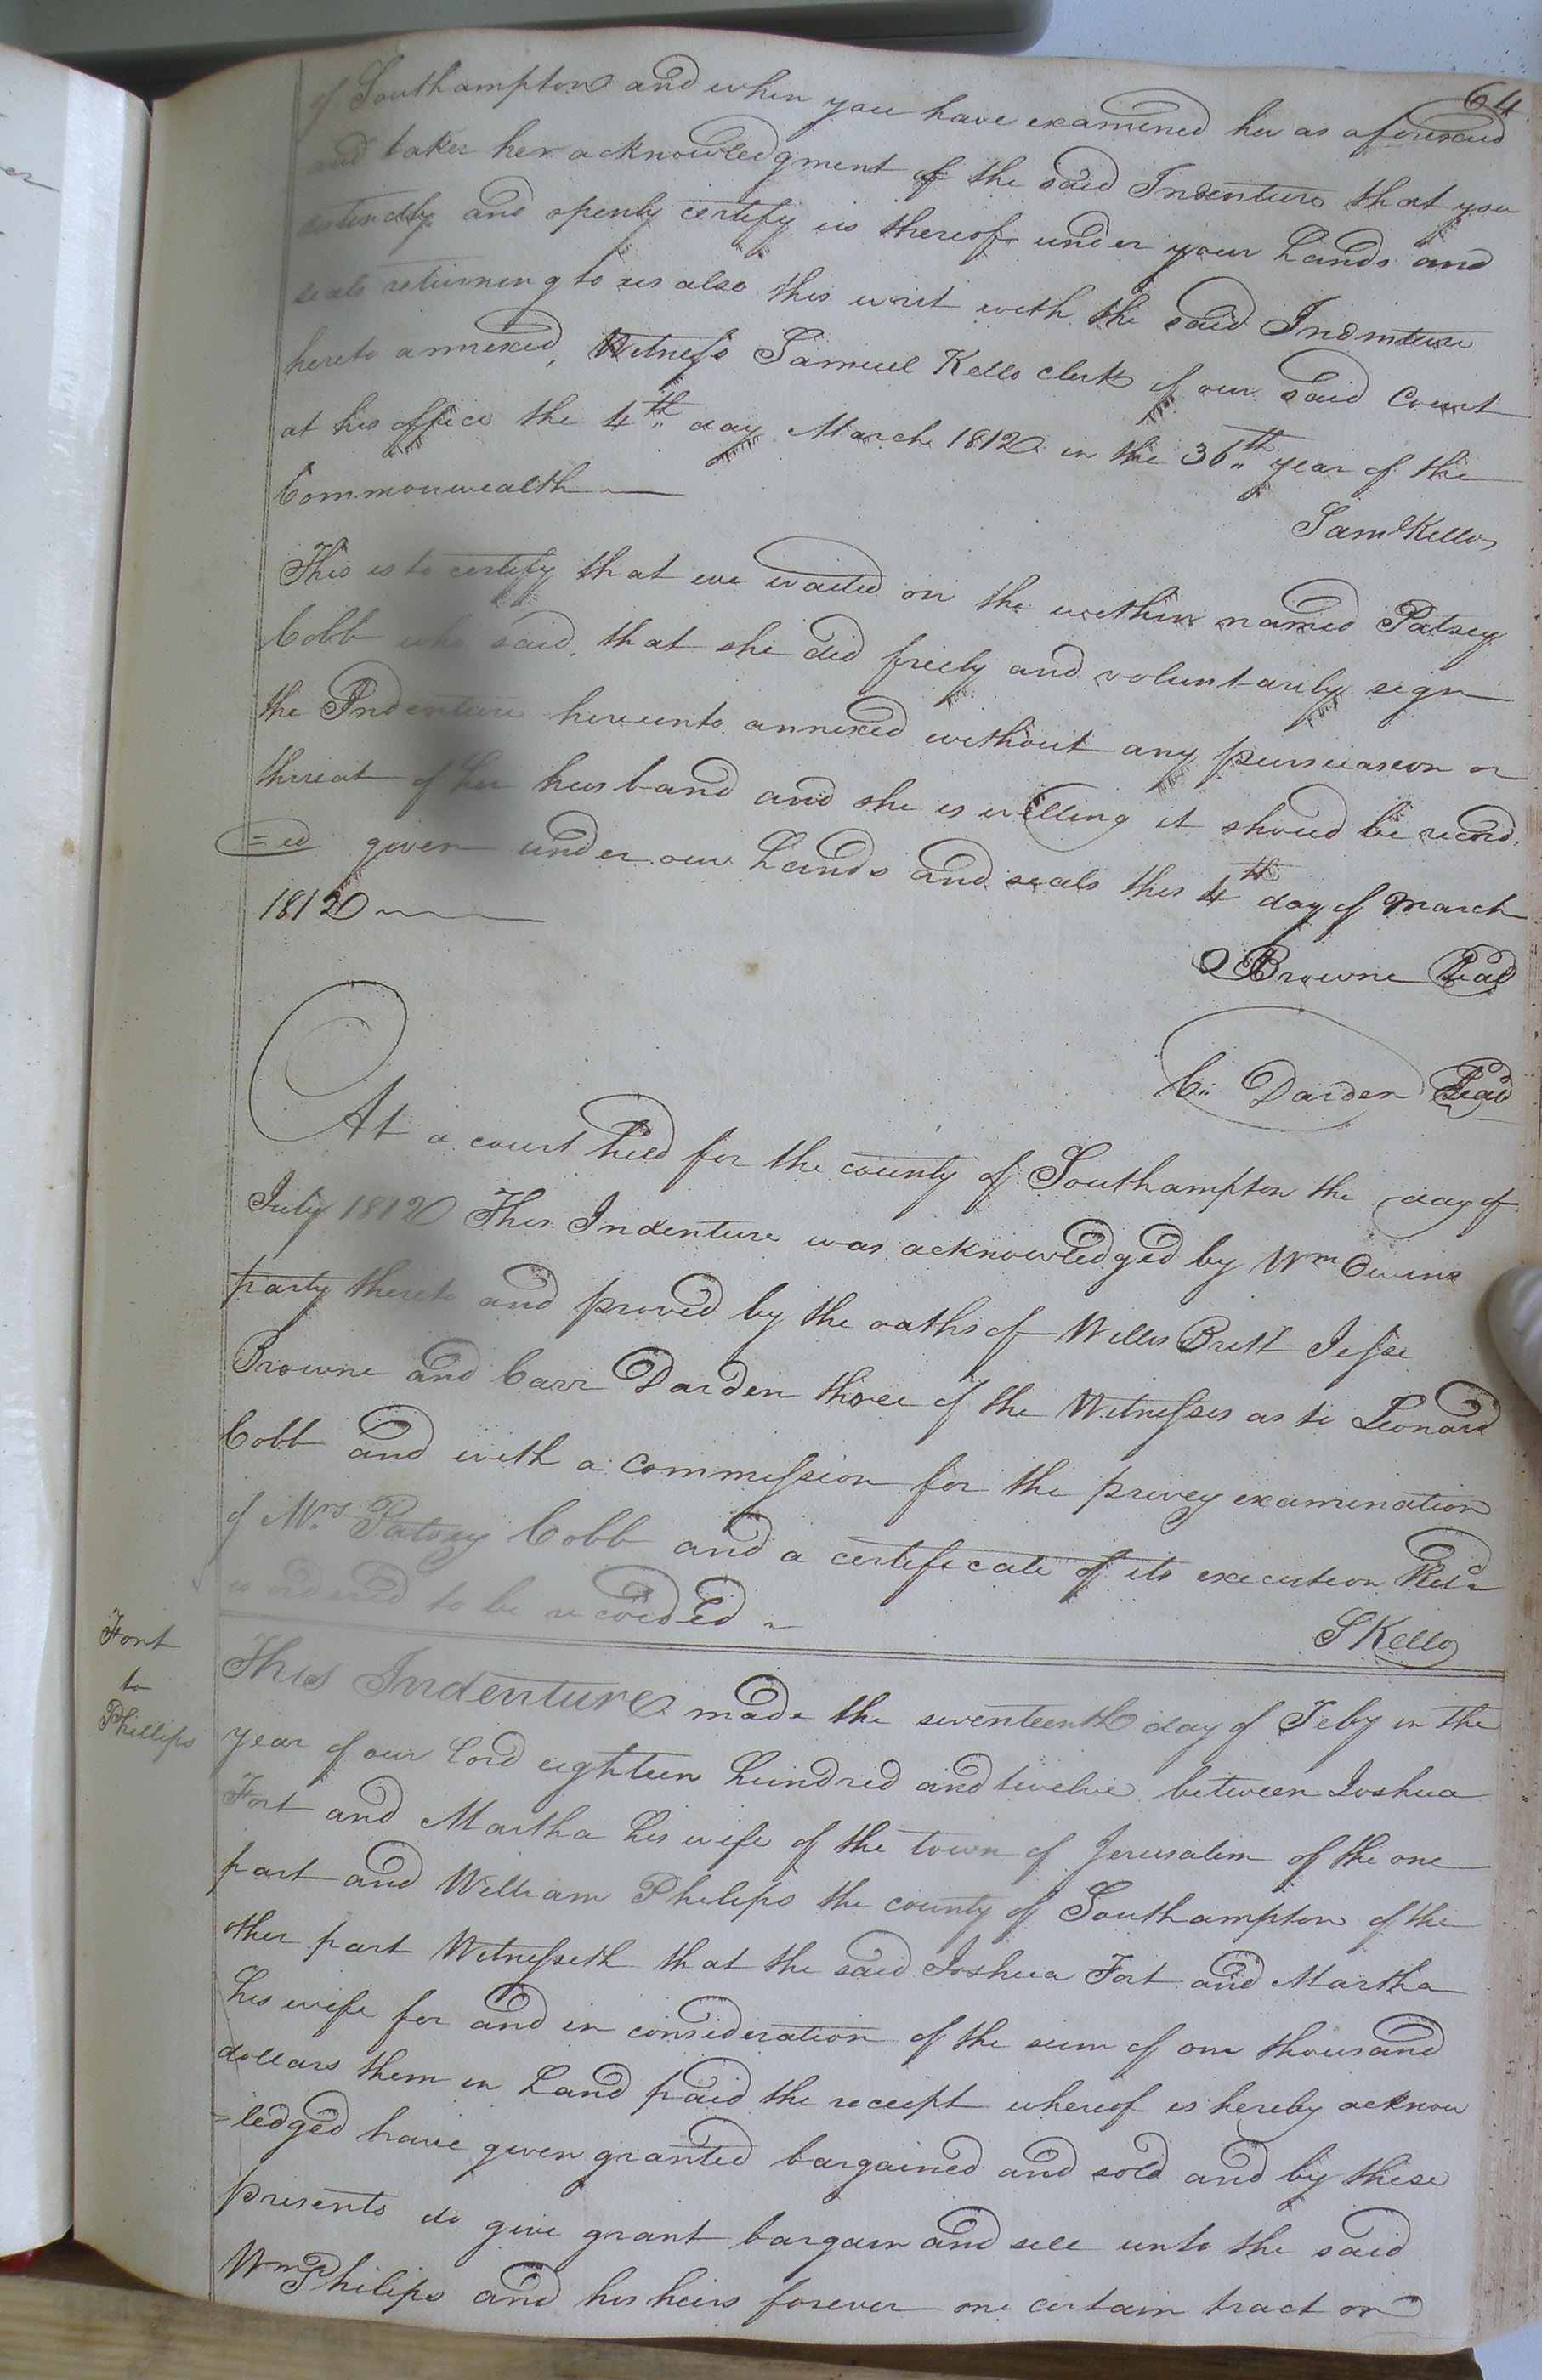 64
of Southampton and when you have examined her as aforesaid
and taken her acknowledgment of the said Indenture that you
distinctly and openly certify us thereof under your hands and
seals returning to us also this writ with the said Indenture
hereto annexed, Witness Samuel Kello clerk of our said Court
at his office the 4th day March 1812 in the 36th year of the
Commonwealth
Saml Kello
This is to certify that we waited on the within named Patsey
Cobb who said that she did freely and voluntarily sign
the Indenture hereunto annexed without any persuasion or
threat of her husband and she is willing it shoud be record
=ed given under our hands and seals this 4th day of March
1812
J Browne Seal
C. Darden Seal
At a court held for the county of Southampton the day of
July 1812 This Indenture was acknowledged by Wm Owens
party thereto and proved by the oaths of Willis Britt Jesse
Browne and Carr Darden three of the Witnesses as to Leonard
Cobb and with a commission for the privey examination
of Mrs Patsey Cobb and a certificate of its execution Retd
is ordered to be recorded
S Kello
Fort
to
Phillips
This Indenture made the seventeenth day of Feby in the
year of our Lord eighteen hundred and twelve between Joshua
Fort and Martha his wife of the town of Jerusalem of the one
part and William Philips the county of Southampton of the
other part Witnesseth that the said Joshua Fort and Martha
his wife for and in consideration of the sum of one thousand
dollars them in hand paid the receipt whereof is hereby acknow
=ledged have given granted bargained and sold and by these
presents do give grant bargain and sell unto the said
Wm Philips and his heirs forever one certain tract or